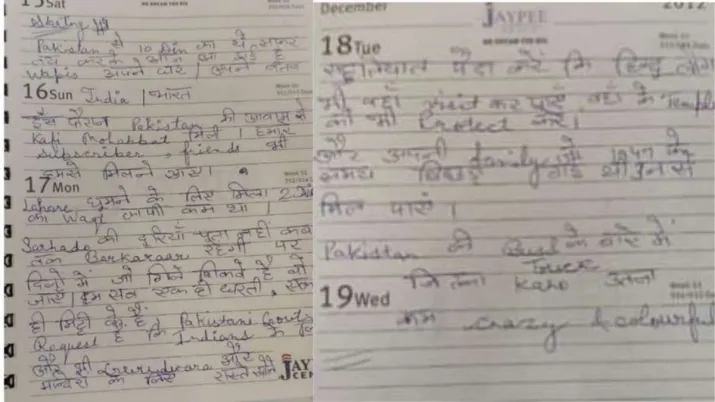 15 Sat
JAYPEE
Pakistan से 10 din का ये सफर
तय करके आज जा रहे है
Wapis अपने घर | अपने वतन
16 Sun India | भारत
इस दौरान Pakistan की आवाम से
Kafi Mohabbat मिली | हमारे
Subscriber, friends भी
हमसे मिलने आए |
17 Mon
Lahore घूमने के लिए मिला 2 
का Waqt काफी कम था |
Sarhado की दुरियाँ पता नहीं कब
तक Barkaraar रहेगी पर
दिलों में जो गिले शिकवे है वो
जाएँ | हम सब एक ही धरती, एक
ही मिट्टी के है | Pakistani Govt
Request है कि Indians के लिए
और भी Gurudwara और
मन्दिरों के लिए रास्ते खोले
JAY
December
2012
JAYPEE
18 Tue
पैदा करें कि हिन्दु लोग
भी वहाँ visit कर पाएं वहाँ के Temple
को भी Protect करें |
और अपनी family जो 1947 के
समय बिछड़ गई थी उन से
मिल पाएं |
Pakistan की Bus के बारे में
Truck
जितना karo उतना
19 Wed
कम crazy & colourful